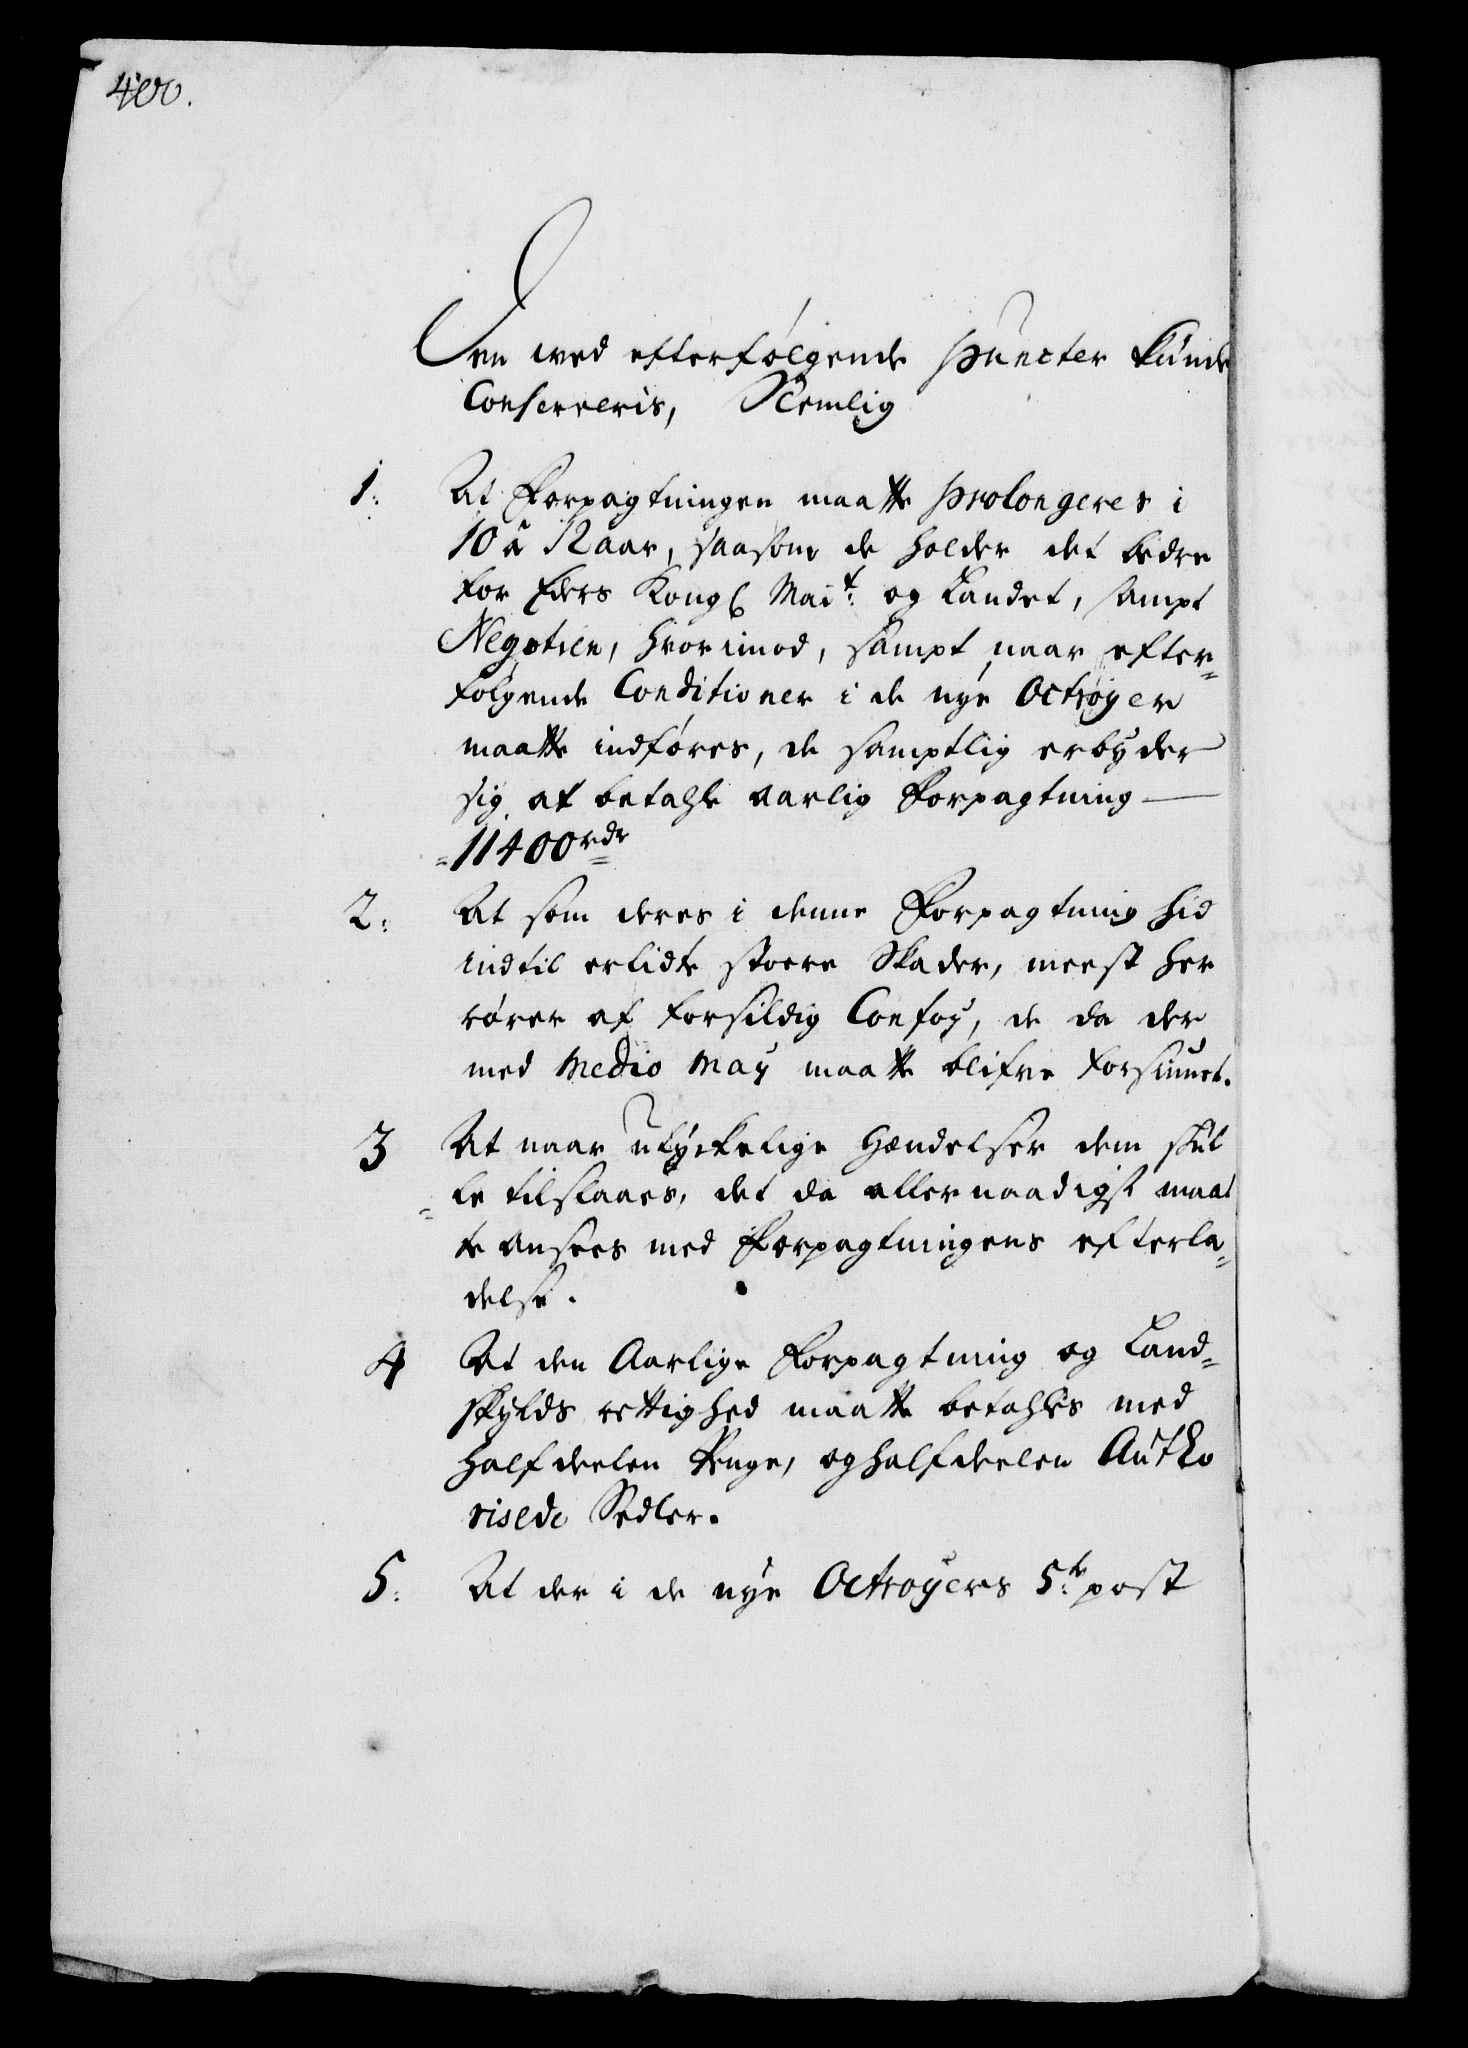 4to.
Een wed efterfølgende puncter kunde
Conserveris, Nemlig
1. At Forpagtningen maatte prolongeres i
10 a 12 aar, saasom de holder det bedre
for Eders Kongl Mait: og Landet, sampt
Negotien, hvorimod, sampt naar efter=
følgende Conditioner i de nye Octroyer
maatte indføres, de samptlig erbyder
sig at betahle aarlig Forpagtning —
=11400rdr
2: At som deres i denne Forpagtning hid
indtil erlidte stoere Skader, meest her
rører af forsildig Confoy, de da der
med Medio May maatte blifve forsiunet.
3 At naar ulyckelige Hændelser dem skul
=le tilslaaes, det da allernaadigst maat
te ansees med Forpagtningens efterla=
delse.
4 At den Aarlige Forpagtning og Land=
skylds rettighed maatte betahles med
halfdeelen Penge, og halfdeelen Autho
risede Sedler.
5: At der i de nye Octroyers 5:te post